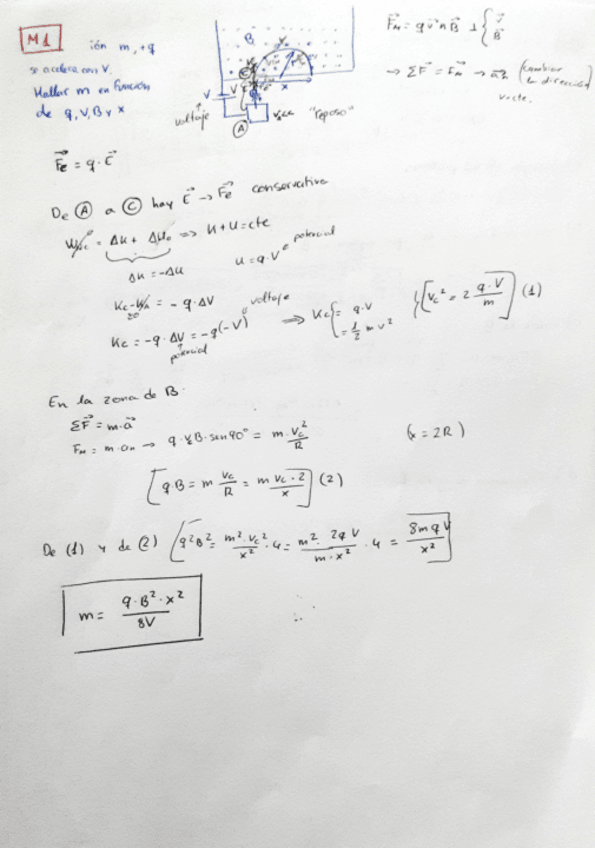 M1
ión m, +q
se acelera con V.
Hallar m en función
de q, V, B y x
B
V
V
C
x
voltaje
A
"reposo"
Fm = q v ∧ B ⊥ { v
B
→ ΣF = Fm → an (cambiar
la dirección)
v cte.
Fe = q · E
De A a C hay E → Fe conservativa
Wnc = ΔK + ΔU => K + U = cte
ΔK = -ΔU
U = q · V potencial
Kc - KA = - q · ΔV
Kc = -q · ΔV = -q(-V) voltaje
potencial
=> Kc { = q·V
= 1/2 m v²
} [Vc² = 2 q·V/m] (1)
En la zona de B.
ΣF = m·a
Fm = m·an → q·vc·B·sen90° = m·vc²/R
(x = 2R)
[q·B = m vc/R = m vc·2/x] (2)
De (1) y de (2) [q²B² = m²·vc²/x² · 4 = m²·2qV/m·x² · 4 = 8mqV/x²]
m = q·B²·x²/8V